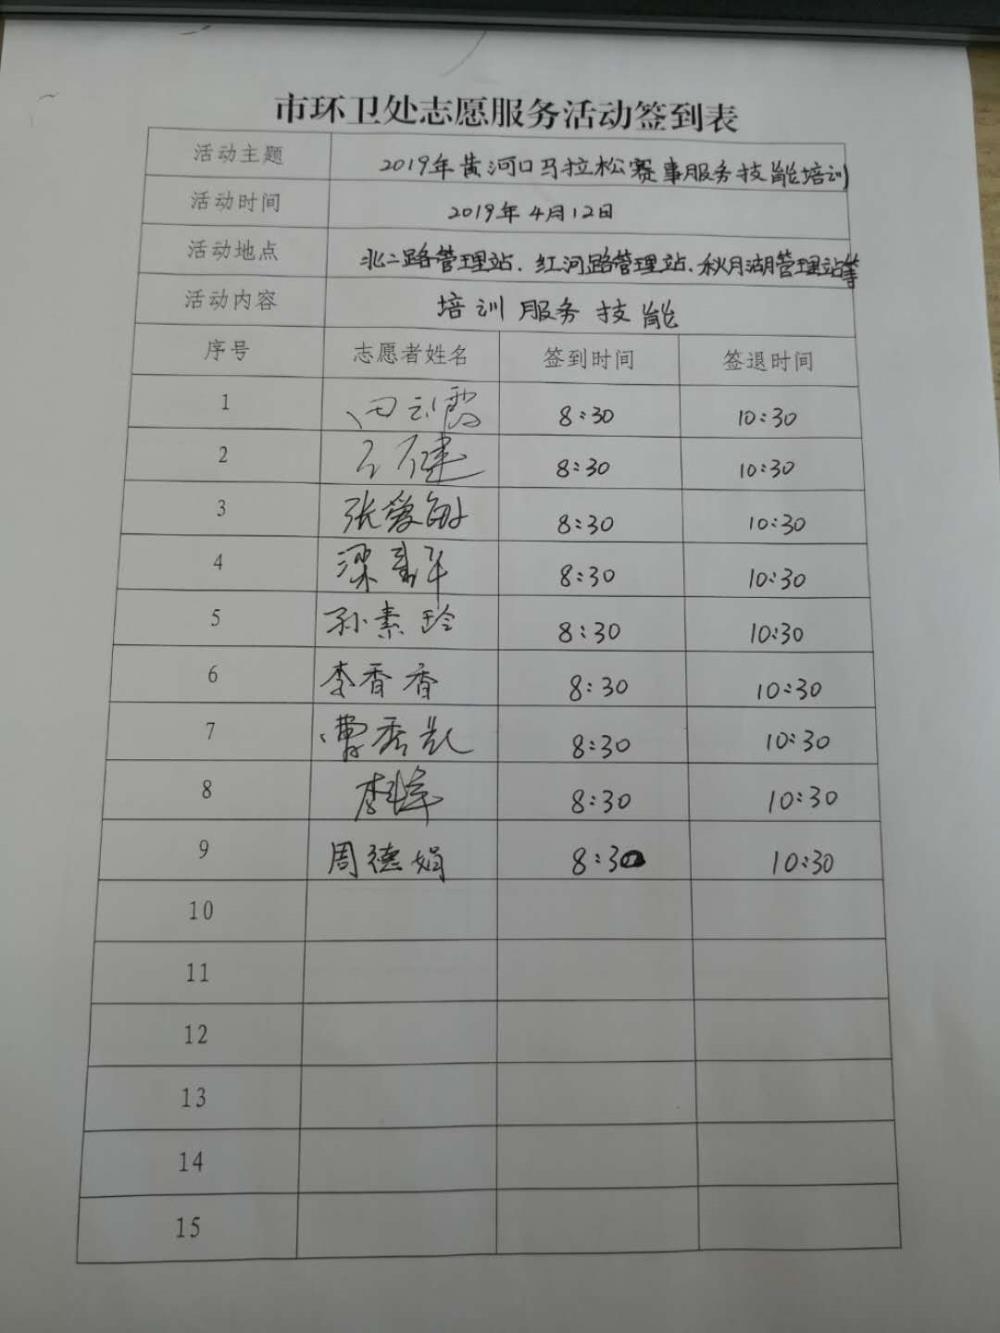 市环卫处志愿服务活动签到表
活动主题 2019年黄河口马拉松赛事服务技能培训
活动时间 2019年4月12日
活动地点 北二路管理站、红河路管理站、秋月湖管理站等
活动内容 培训服务技能
序号 志愿者姓名 签到时间 签退时间
1 8:30 10:30
2 8:30 10:30
3 张爱敏 8:30 10:30
4 梁 8:30 10:30
5 孙素玲 8:30 10:30
6 李香香 8:30 10:30
7 曹秀 8:30 10:30
8 李 8:30 10:30
9 周德娟 8:30 10:30
10
11
12
13
14
15